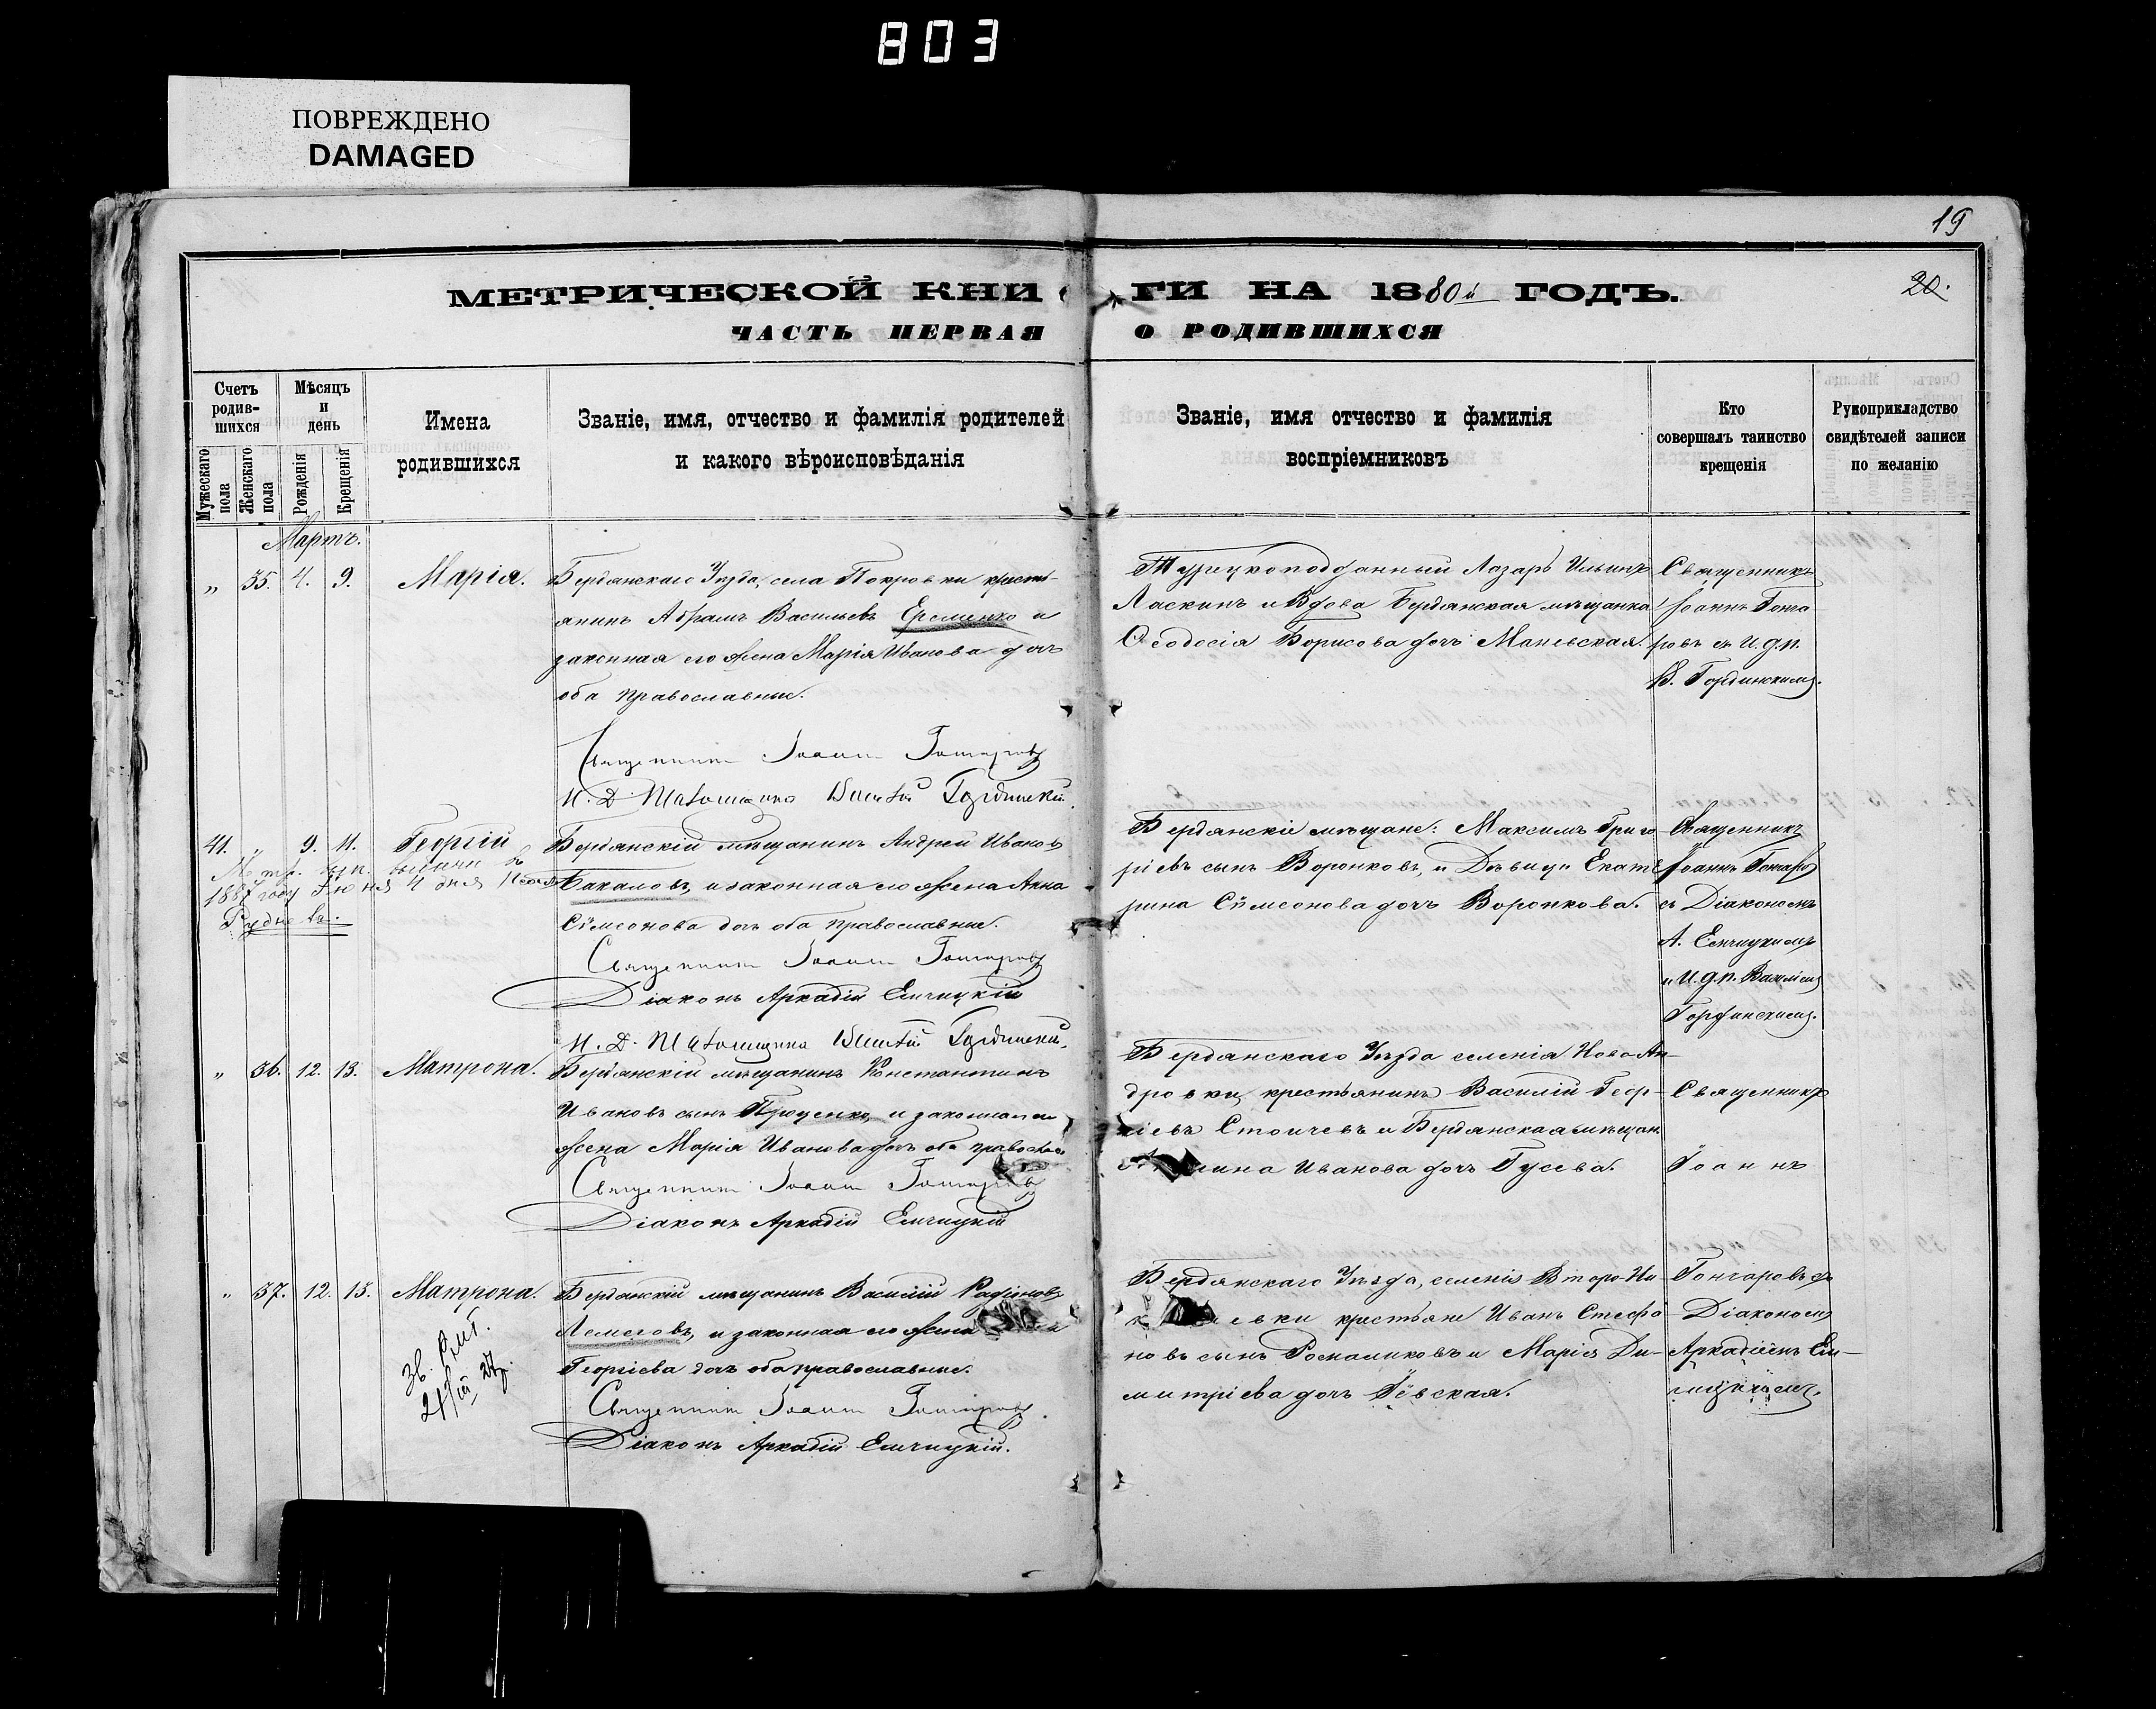 803
ПОВРЕЖДЕНО
DAMAGED
19
20.
МЕТРИЧЕСКОЙ КНИГИ НА 1880й ГОДЪ.
ЧАСТЬ ПЕРВАЯ О РОДИВШИХСЯ
Счетъ родившихся
Мужескаго пола
Женскаго пола
Мѣсяцъ и день
Рожденія
Крещенія
Имена родившихся
Званіе, имя, отчество и фамилія родителей
и какого вѣроисповѣданія
Званіе, имя отчество и фамилія
воспріемниковъ
Кто
совершалъ таинство
крещенія
Рукоприкладство
свидѣтелей записи
по желанію
Мартъ.
„ 35. 4. 9. Марія.
Бердянскаго Уѣзда, села Покровки кресть-
янинъ Абрамъ Васильевъ Еременко и
законная его жена Марія Иванова дочь
оба православные.
Священникъ Іоаннъ Гончаровъ
И. Д. Псаломщика Василій Гординскій.
Турецкоподданный Лазарь Ильинъ
Ласкинъ и Вдова Бердянская мѣщанка
Ѳеодосія Борисова дочь Маневская.
Священникъ
Іоаннъ Гонча-
ровъ съ И.д.п.
В. Гординскимъ.
41. „ 9. 11. Георгій
1887 году Іюня 4 дня
Бердянскій мѣщанинъ Андрей Ивановъ
Бакаловъ, и законная его жена Анна
Сѵмеонова дочь оба православные.
Священникъ Іоаннъ Гончаровъ
Діаконъ Аркадій Емчицкій
И. Д. Псаломщика Василій Гординскій.
Бердянскіе мѣщане: Максимъ Григо-
ріевъ сынъ Воронковъ, и Дѣвица Екате-
рина Сѵмеонова дочь Воронкова.
Священникъ
Іоаннъ Гончаровъ
съ Діакономъ
А. Емчицкимъ
и И.д.п. Василіемъ
Гординскимъ.
„ 36. 12. 13. Матрона.
Бердянскій мѣщанинъ Константинъ
Ивановъ сынъ Проценко, и законная его
жена Марія Иванова дочь оба православ
Священникъ Іоаннъ Гончаровъ
Діаконъ Аркадій Емчицкій
Бердянскаго Уѣзда селенія Ново Ан-
дровки, крестьянинъ Василій Геор-
гіевъ Стоичевъ и Бердянская мѣщан.
Иванова дочь Гусева.
Священникъ
Іоаннъ
„ 37. 12. 13. Матрона.
Бердянскій мѣщанинъ Василій Радіоновъ
Лемеговъ, и законная его жена
Георгіева дочь оба православные.
Священникъ Іоаннъ Гончаровъ
Діаконъ Аркадій Емчицкій.
Бердянскаго Уѣзда, селенія Второ-Ни-
евки крестьяне Иванъ Стефа-
новъ сынъ и Марія Ди-
митріева дочь
Гончаровъ съ
Діакономъ
Аркадіемъ Ем-
чицкимъ.